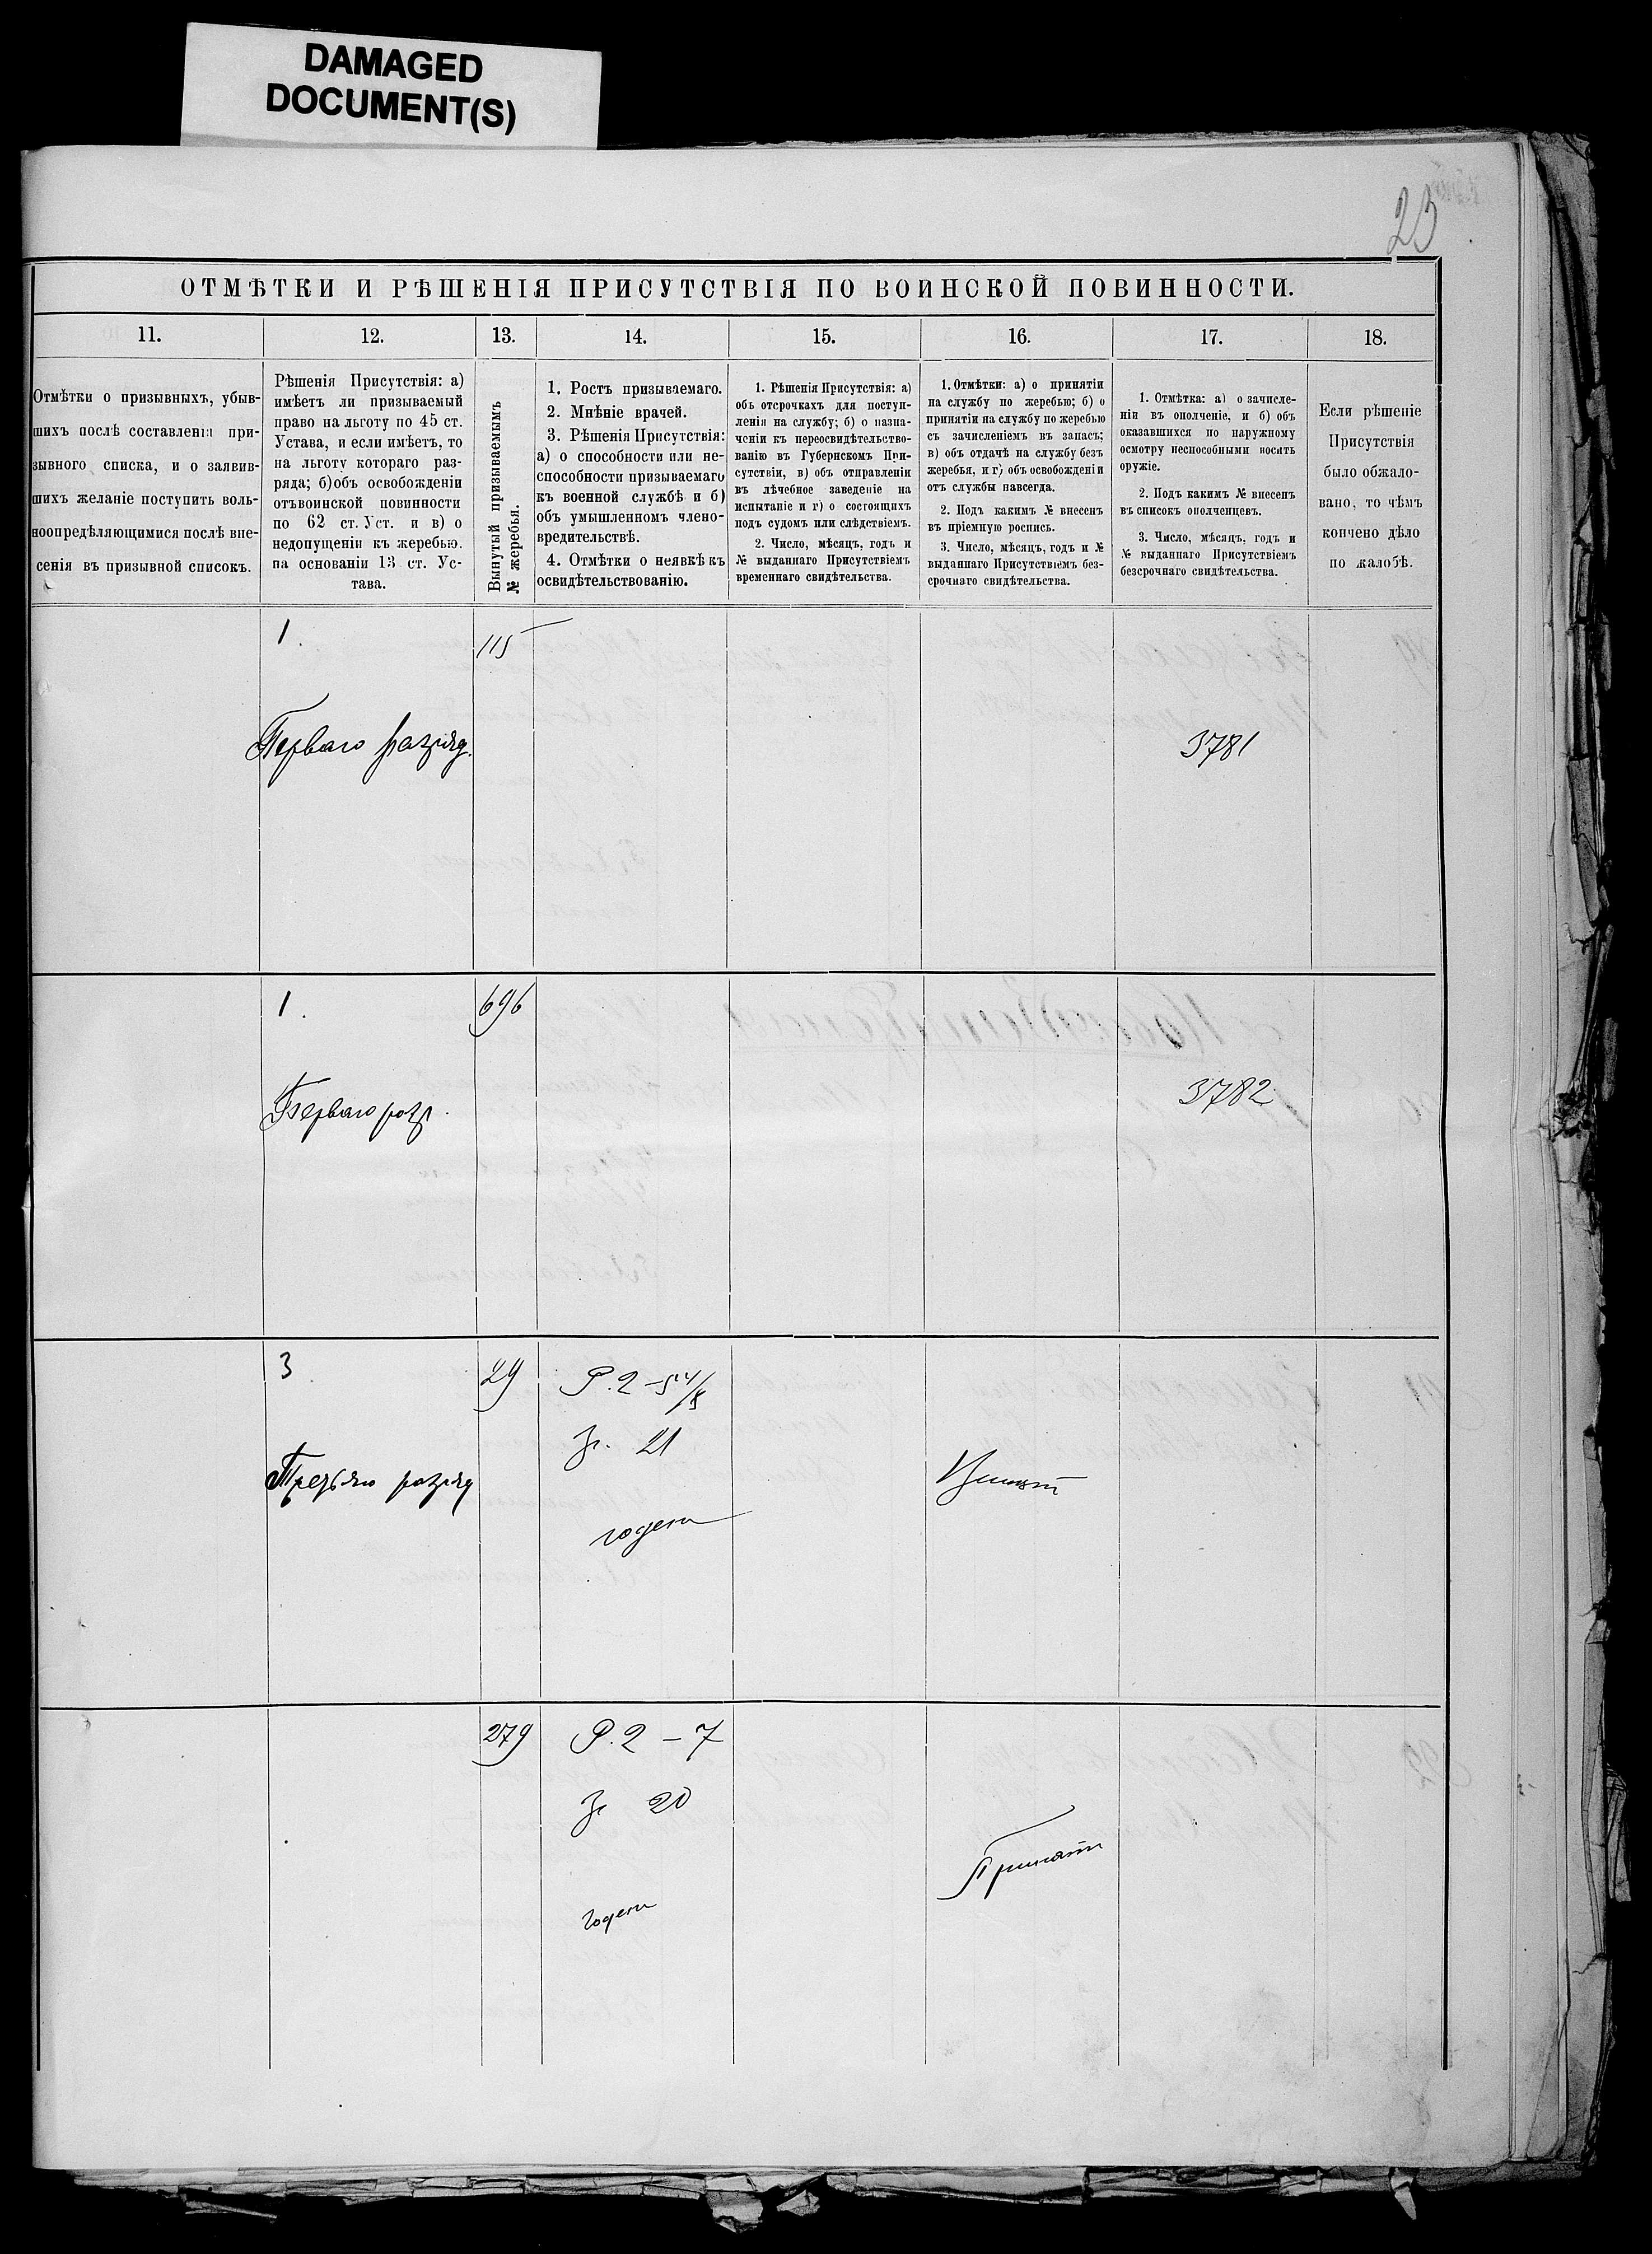 DAMAGED
DOCUMENT(S)
23
ОТМѢТКИ И РѢШЕНІЯ ПРИСУТСТВІЯ ПО ВОИНСКОЙ ПОВИННОСТИ.
11.
12.
13.
14.
15.
16.
17.
18.
Отмѣтки о призывныхъ, убыв-
шихъ послѣ составленія при-
зывного списка, и о заявив-
шихъ желаніе поступить воль-
ноопредѣляющимися послѣ вне-
сенія въ призывной списокъ.
Рѣшенія Присутствія: а)
имѣетъ ли призываемый
право на льготу по 45 ст.
Устава, и если имѣетъ, то
на льготу котораго раз-
ряда; б) объ освобожденіи
отъ воинской повинности
по 62 ст. Уст. и в) о
недопущеніи къ жеребью.
на основаніи 13 ст. Ус-
тава.
Вынутый призываемымъ
№ жеребья.
1. Ростъ призываемаго.
2. Мнѣніе врачей.
3. Рѣшенія Присутствія:
а) о способности или не-
способности призываемаго
къ военной службѣ и б)
объ умышленномъ члено-
вредительствѣ.
4. Отмѣтки о неявкѣ къ
освидѣтельствованію.
1. Рѣшенія Присутствія: а)
объ отсрочкахъ для поступ-
ленія на службу; б) о назна-
ченіи къ переосвидѣтельство-
ванію въ Губернскомъ При-
сутствіи, в) объ отправленіи
въ лѣчебное заведеніе на
испытаніе и г) о состоящихъ
подъ судомъ или слѣдствіемъ.
2. Число, мѣсяцъ, годъ и
№ выданнаго Присутствіемъ
временнаго свидѣтельства.
1. Отмѣтки: а) о принятіи
на службу по жеребью; б) о
принятіи на службу по жеребью
съ зачисленіемъ въ запасъ;
в) объ отдачѣ на службу безъ
жеребья, и г) объ освобожденіи
отъ службы навсегда.
2. Подъ какимъ № внесенъ
въ пріемную роспись.
3. Число, мѣсяцъ, годъ и №
выданнаго Присутствіемъ без-
срочнаго свидѣтельства.
1. Отмѣтка: а) о зачисле-
ніи въ ополченіе, и б) объ
оказавшихся по наружному
осмотру неспособными носить
оружіе.
2. Подъ какимъ № внесенъ
въ списокъ ополченцевъ.
3. Число, мѣсяцъ, годъ и
№ выданнаго Присутствіемъ
безсрочнаго свидѣтельства.
Если рѣшеніе
Присутствія
было обжало-
вано, то чѣмъ
кончено дѣло
по жалобѣ.
1.
115
Перваго разряд.
3781
1.
696
Перваго разр.
3782
3
29
Р. 2 - 5 4/8
Зг. 21
Третьяго разряд
годенъ
Принятъ
279
Р. 2 - 7
Зг 20
Принятъ
годенъ